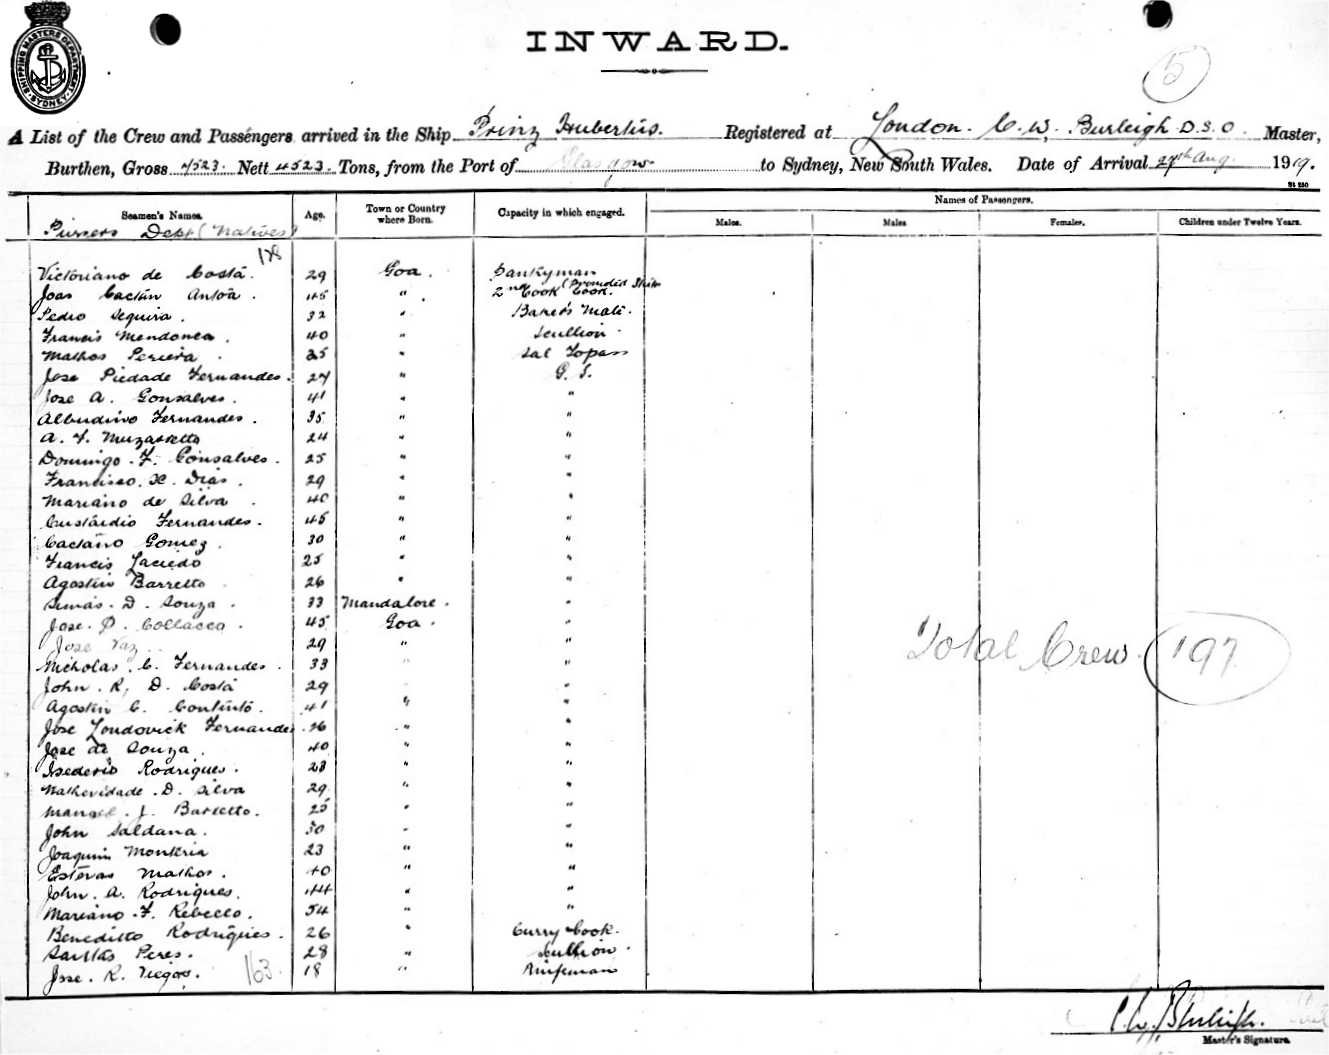 SHIPPING MASTERS DEPARTMENT SYDNEY
INWARD.
5
A List of the Crew and Passengers arrived in the Ship Prinz Hubertus. Registered at London. C. W. Burleigh D.S.O. Master,
Burthen, Gross 4523 Nett 4523 Tons, from the Port of Glasgow to Sydney, New South Wales. Date of Arrival 27th Aug. 1919.
Seamen's Names. Age. Town or Country where Born. Capacity in which engaged. Names of Passengers.
Males. Males Females. Children under Twelve Years.
Pursers Dept (Natives)
128
Victoriano de Costa. 29 Goa.
Joas Caetan Antoa. 45 " 2nd Cook (Provided Ships Cook.
Pedro Sequira. 32 " Bakers Mate.
Francis Mendonca. 40 " Scullion.
Mathos Pereira. 25 " Sal Topass
Jose Piedade Fernandes. 27 " G. S.
Jose A. Gonsalves. 41 " "
Albudino Fernandes. 35 " "
A. F. 24 " "
Domingo. F. Gonsalves. 25 " "
Francisco. X. Dias. 29 " "
Mariano de Silva. 40 " "
Custodio Fernandes. 45 " "
Caetano Gomez. 30 " "
Francis 25 " "
Agostin Barretto 26 " "
D. Souza. 33 Mandalore. "
Jose. P. Collacca. 45 Goa. "
Jose Vaz 29 " "
Nicholas. C. Fernandes. 33 " "
John. R. D. Costa 29 "
Agostin C. Continto. 41 " "
Jose Londovick Fernandes 26 " "
Jose de Souza. 40 " "
Rodrigues. 28 " "
D. Silva 29 " "
Manoel. J. Barretto. 25 " "
John Saldana. 30 " "
Joaquim Monteria 23 " "
Estevas Mathos. 40 " "
John. A. Rodrigues. 44 " "
Mariano. F. Rebello. 54 " "
Beneditto Rodrigues. 26 " Curry Cook.
Santas Peres. 28 " Scullion.
Jose. R. Viegas. 18 "
163
Total Crew. 197
C. W. Burleigh.
Master's Signature.